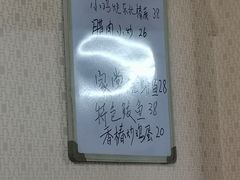 小鸡炖 38
腊肉小炒 26
家常 鱼28
特色鲅鱼 38
香椿炒鸡蛋 20